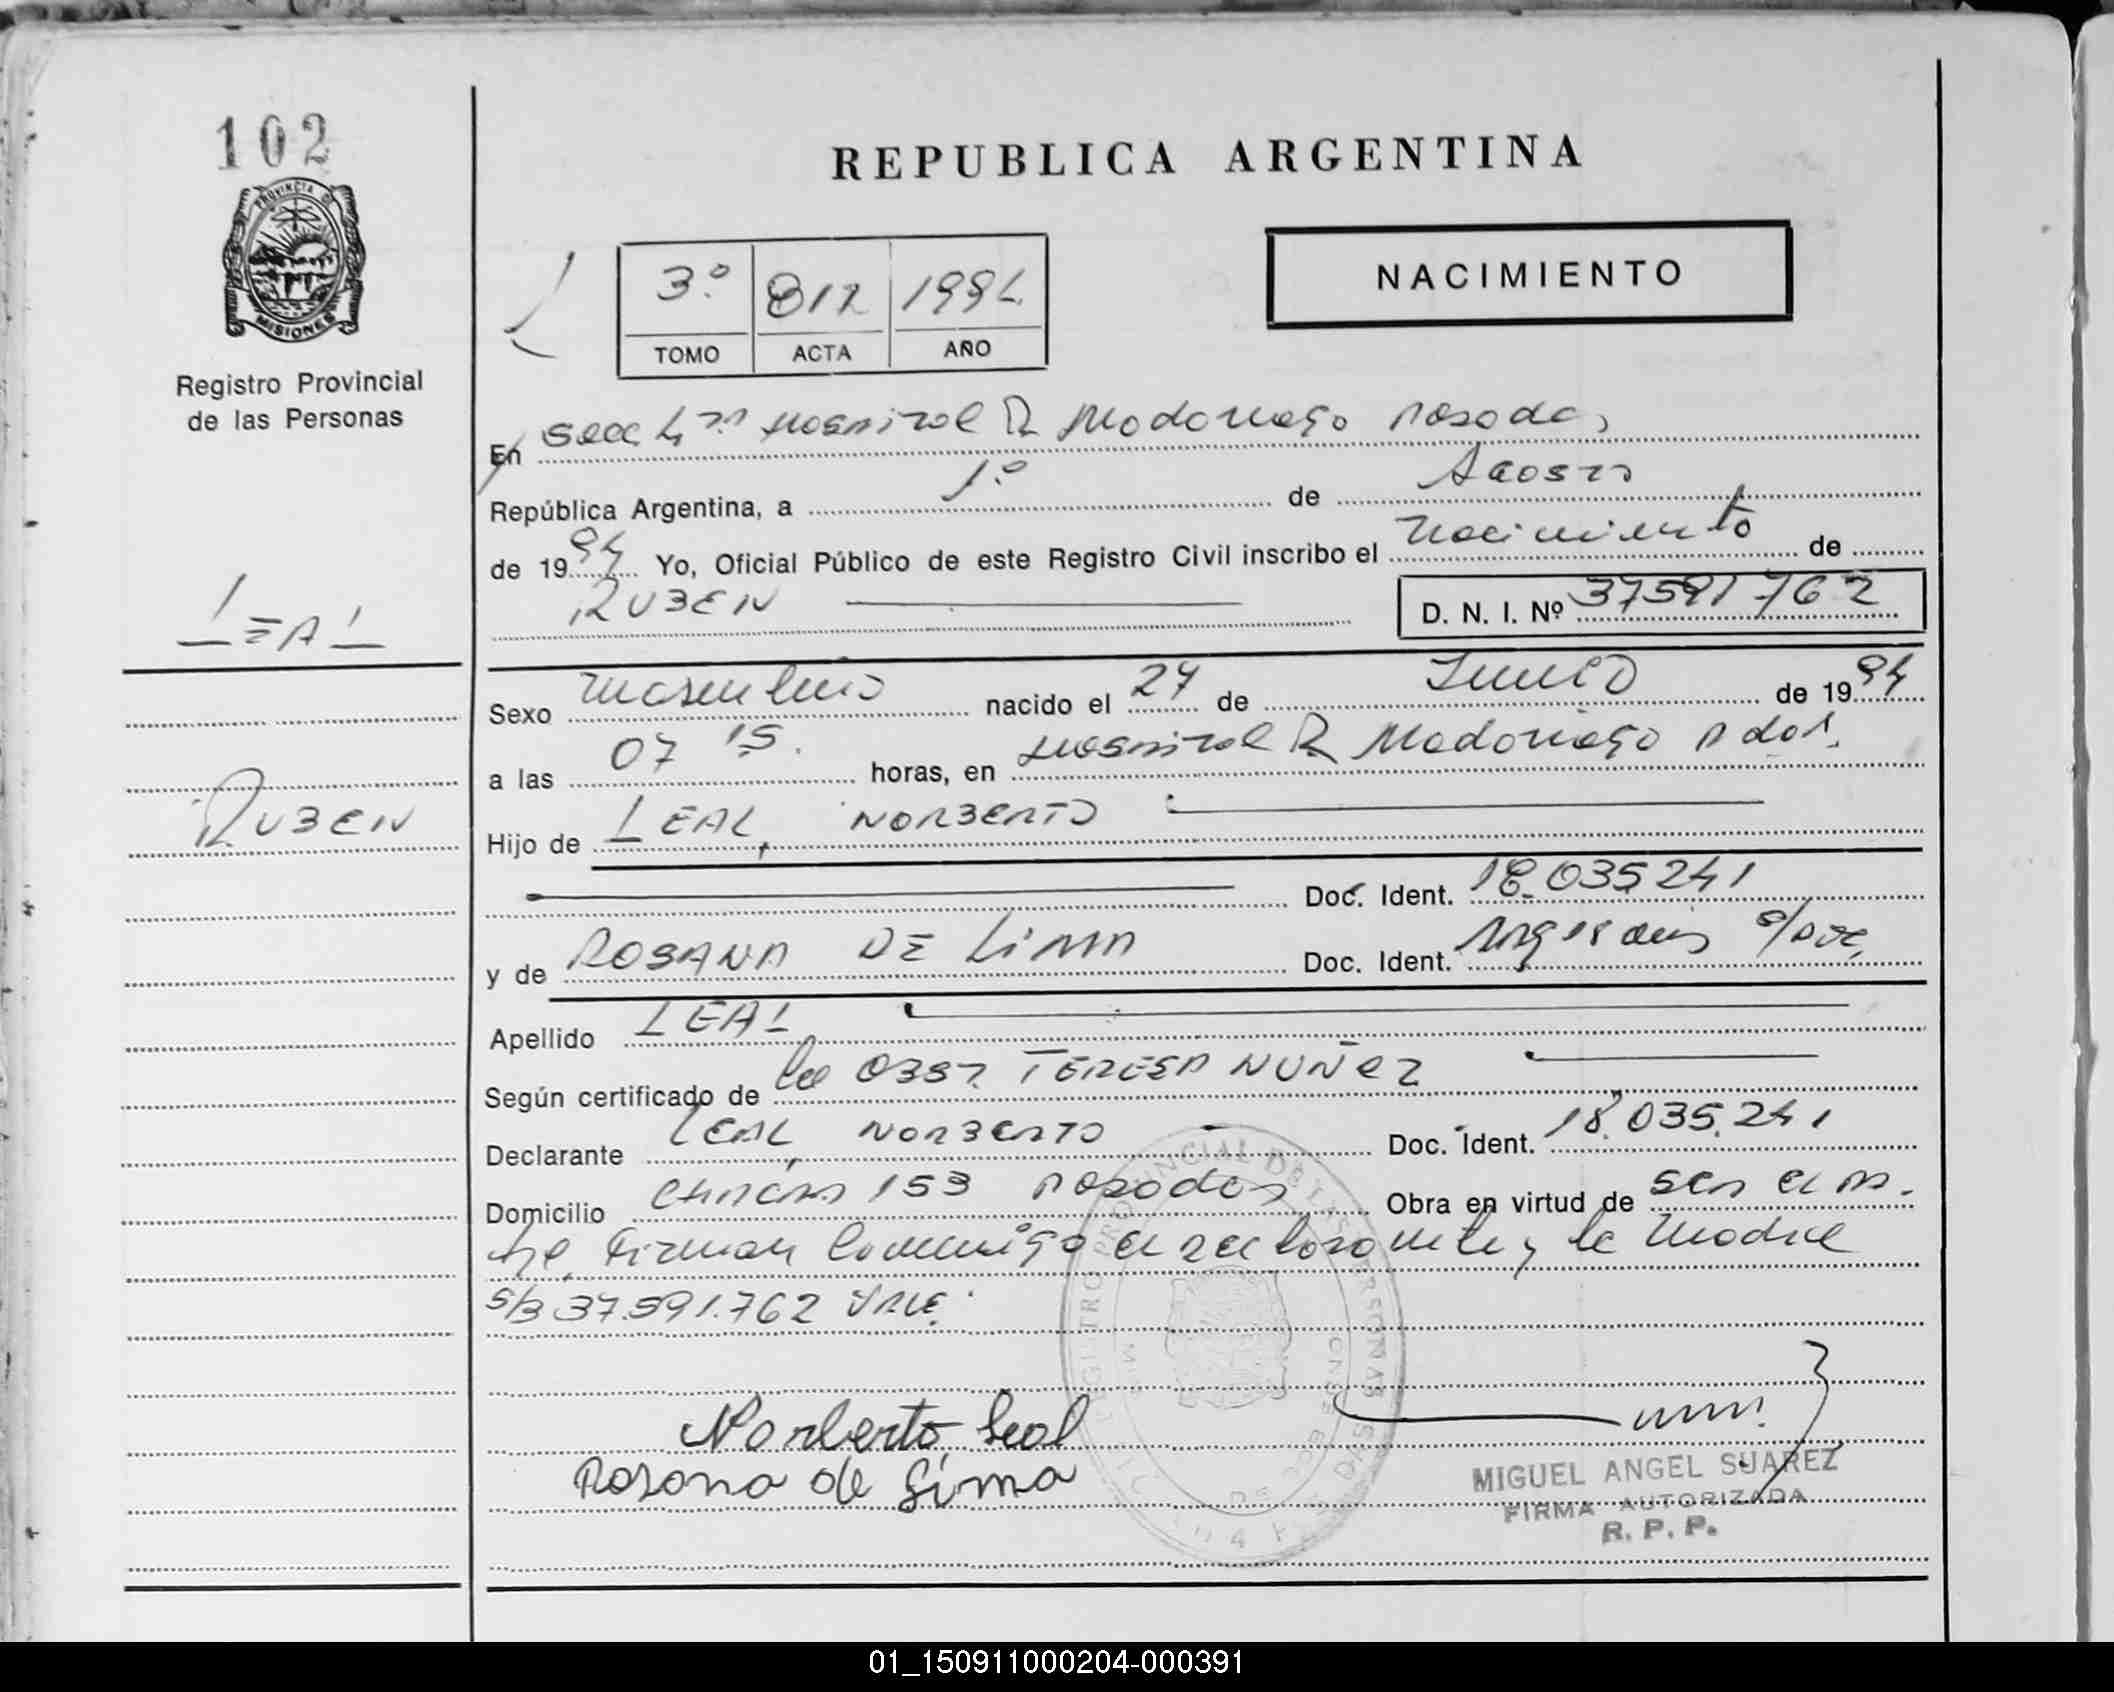 102
REPUBLICA ARGENTINA
PROVINCIA D
MISIONES
Registro Provincial
de las Personas
NACIMIENTO
3º 812 1994
TOMO ACTA AÑO
En Secc 4 Hospital R Madariaga Posadas
República Argentina, a 1º de Agosto
de 1994 Yo, Oficial Público de este Registro Civil inscribo el Nacimiento de
RUBEN D. N. I. Nº 37591762
LEAL
Sexo Masculino nacido el 24 de Junio de 1994
a las 07 15. horas, en Hospital R Madariaga Pdas.
RUBEN
Hijo de LEAL, NORBERTO
Doc. Ident. 18.035241
y de ROSANA DE LIMA Doc. Ident. s/doc.
Apellido LEAL
Según certificado de la OBST TERESA NUÑEZ
Declarante LEAL, NORBERTO Doc. Ident. 18.035.241
Domicilio 153 Posadas Obra en virtud de ser el pa-
dre. Firman conmigo el declarante y la madre
S/B 37.591.762 VALE.
Norberto Leal
Rosana de Lima
MIGUEL ANGEL SUAREZ
FIRMA AUTORIZADA
R. P. P.
01_150911000204-000391